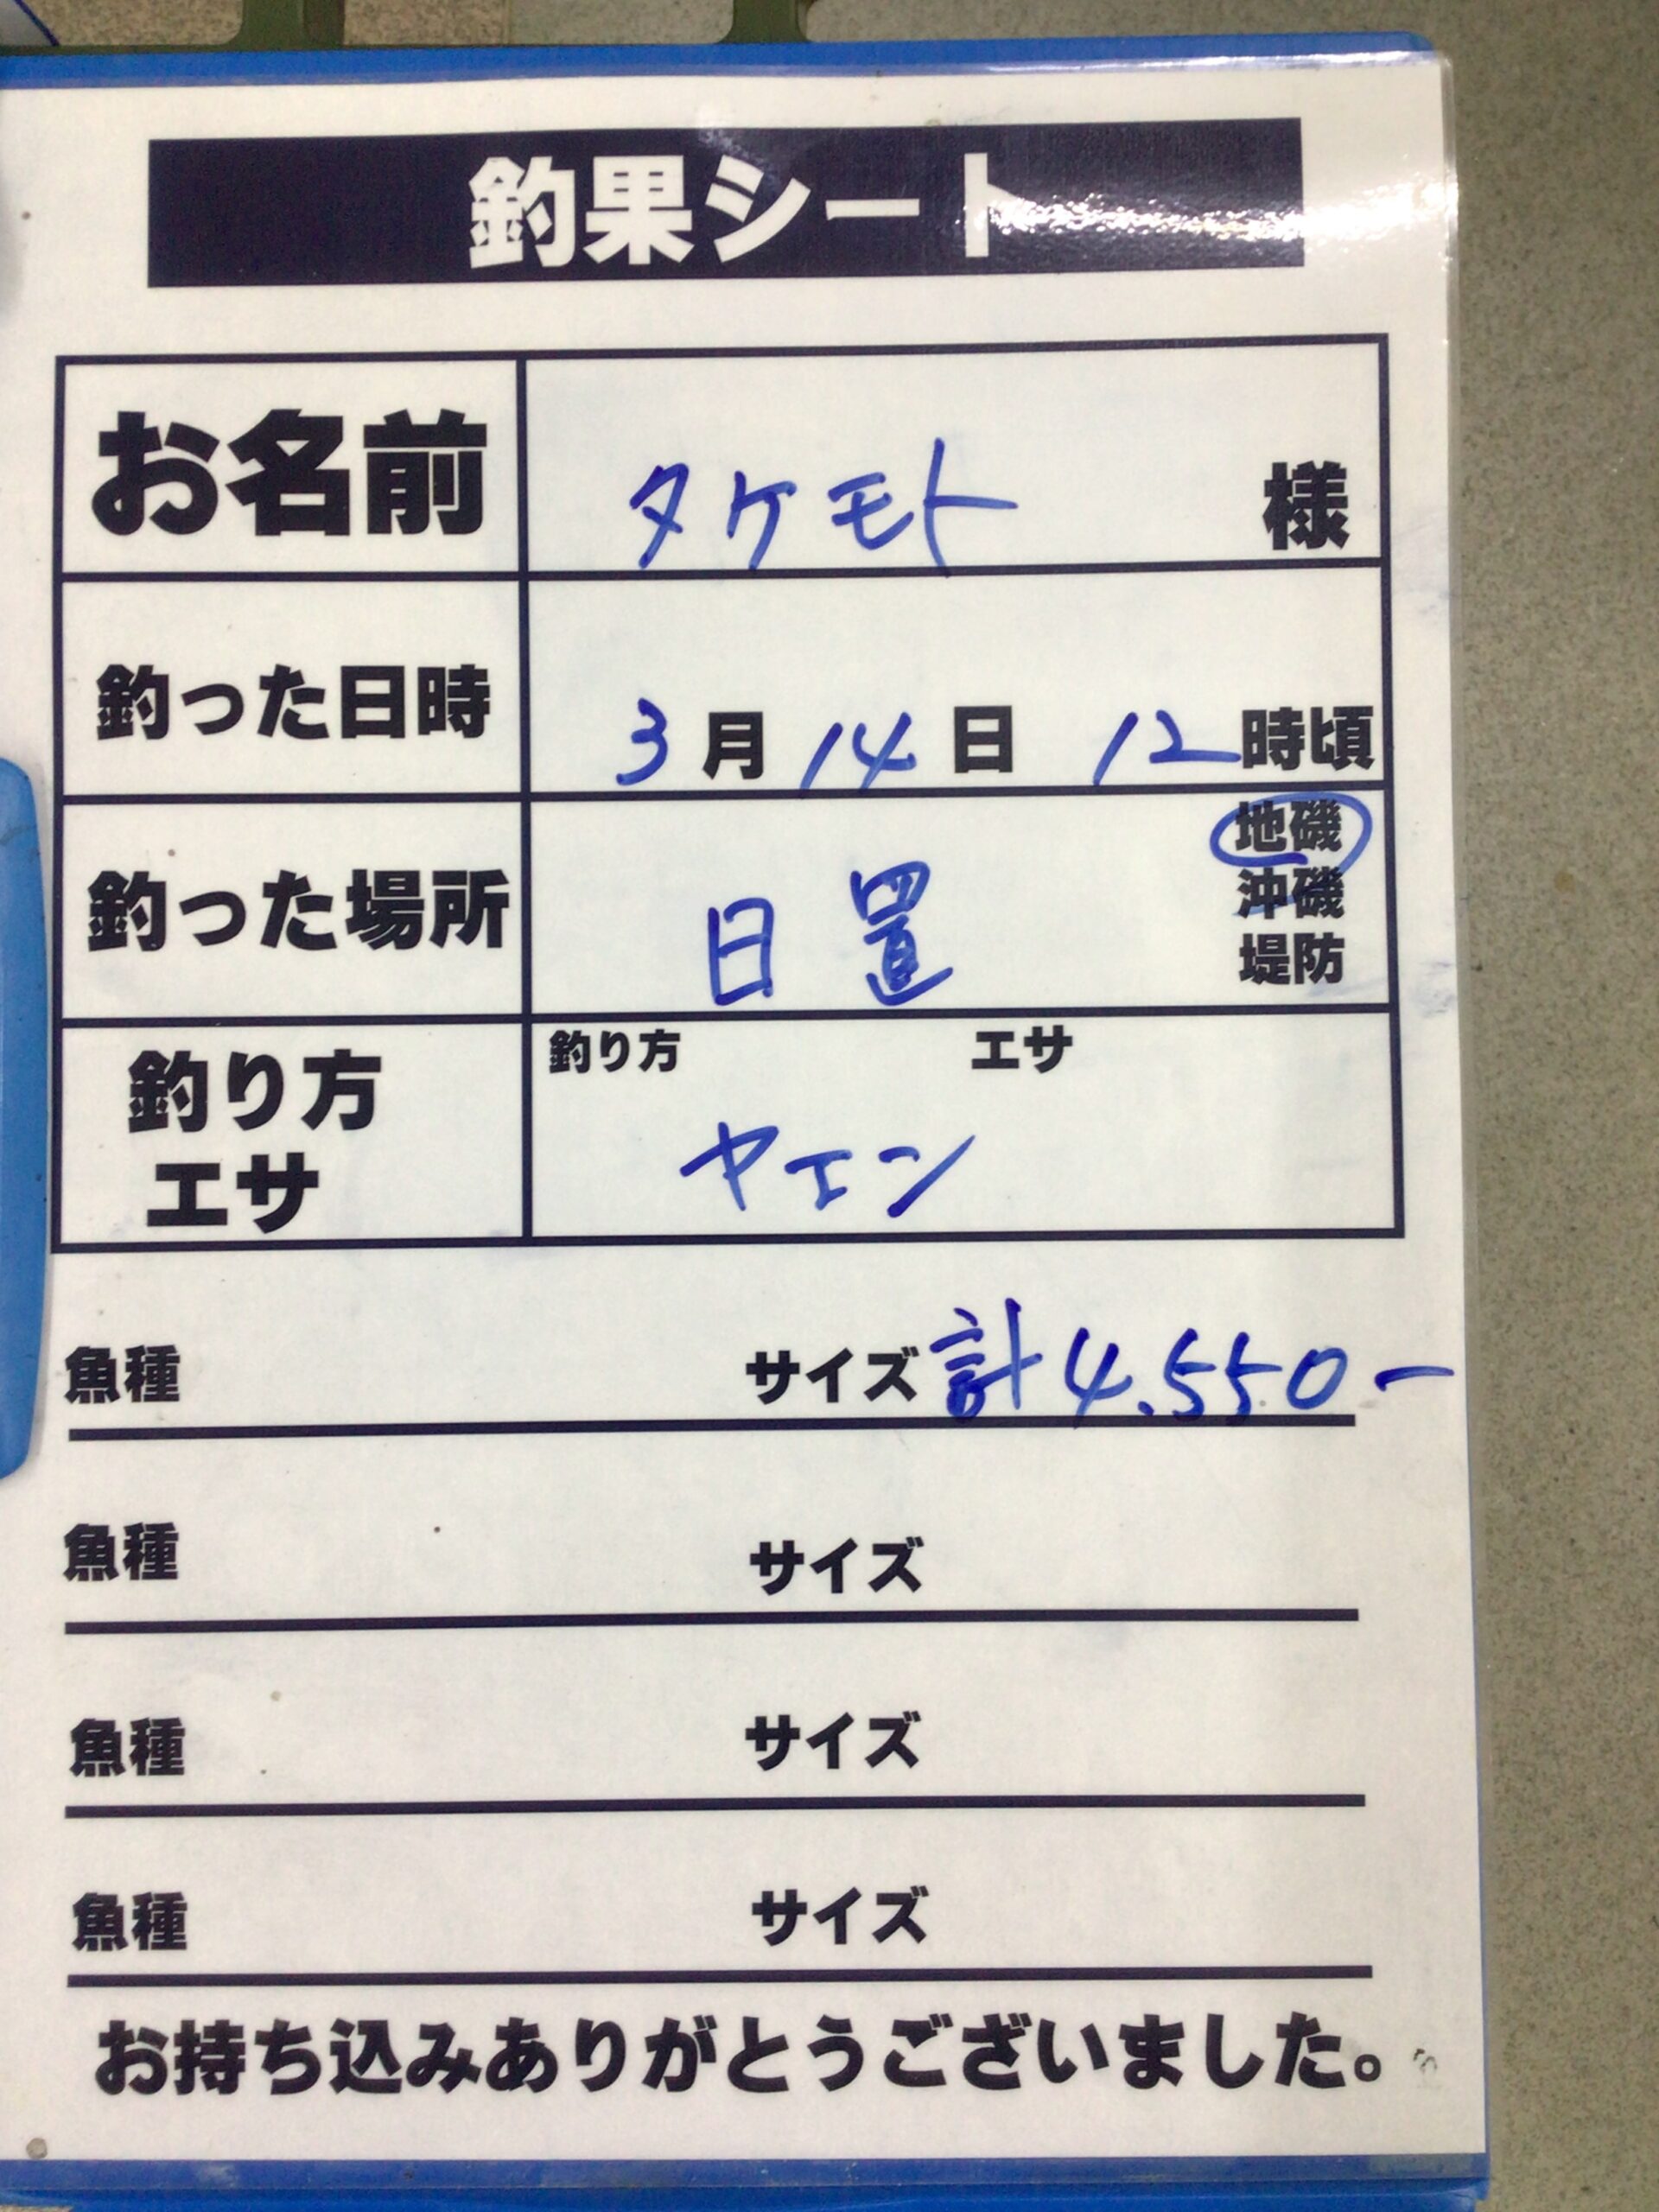 釣果シート
お名前 タケモト 様
釣った日時 3月14日 12時頃
釣った場所 日置 地磯
沖磯
堤防
釣り方 エサ
釣り方
エサ
ヤエン
魚種 サイズ 計4.550-
魚種 サイズ
魚種 サイズ
魚種 サイズ
お持ち込みありがとうございました。